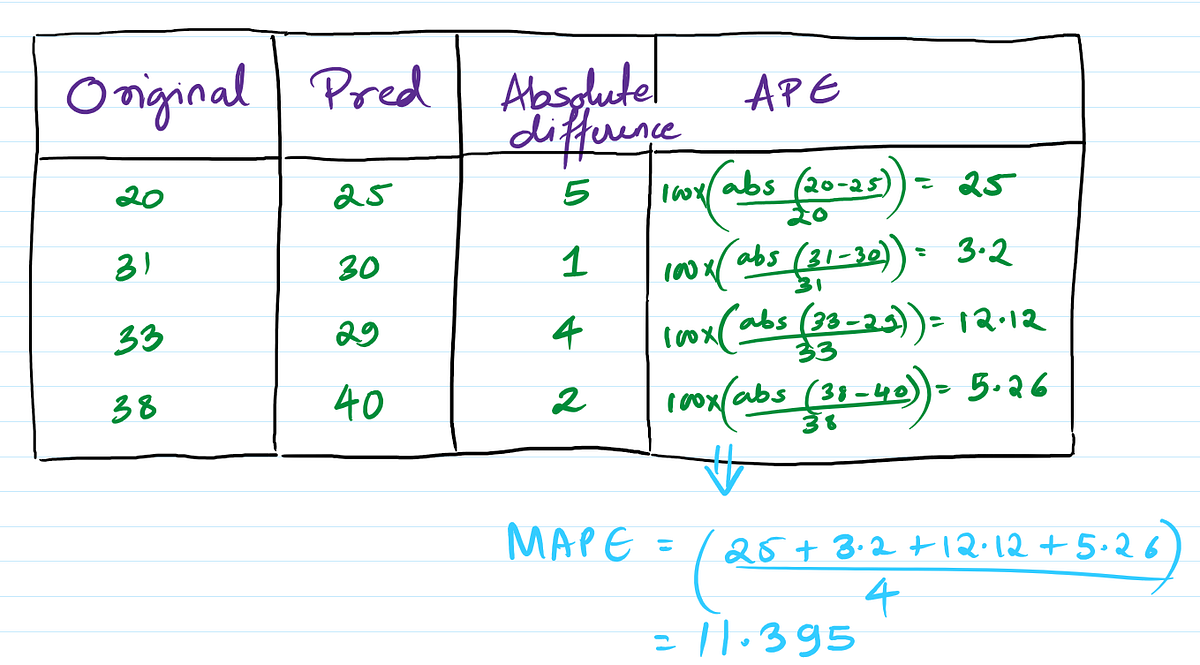 Original Pred Absolute difference APE
20 25 5 100x(abs (20-25)/20) = 25
31 30 1 100x(abs (31-30)/31) = 3.2
33 29 4 100x(abs (33-29)/33) = 12.12
38 40 2 100x(abs (38-40)/38) = 5.26
⇓
MAPE = (25+3.2+12.12+5.26/4)
= 11.395